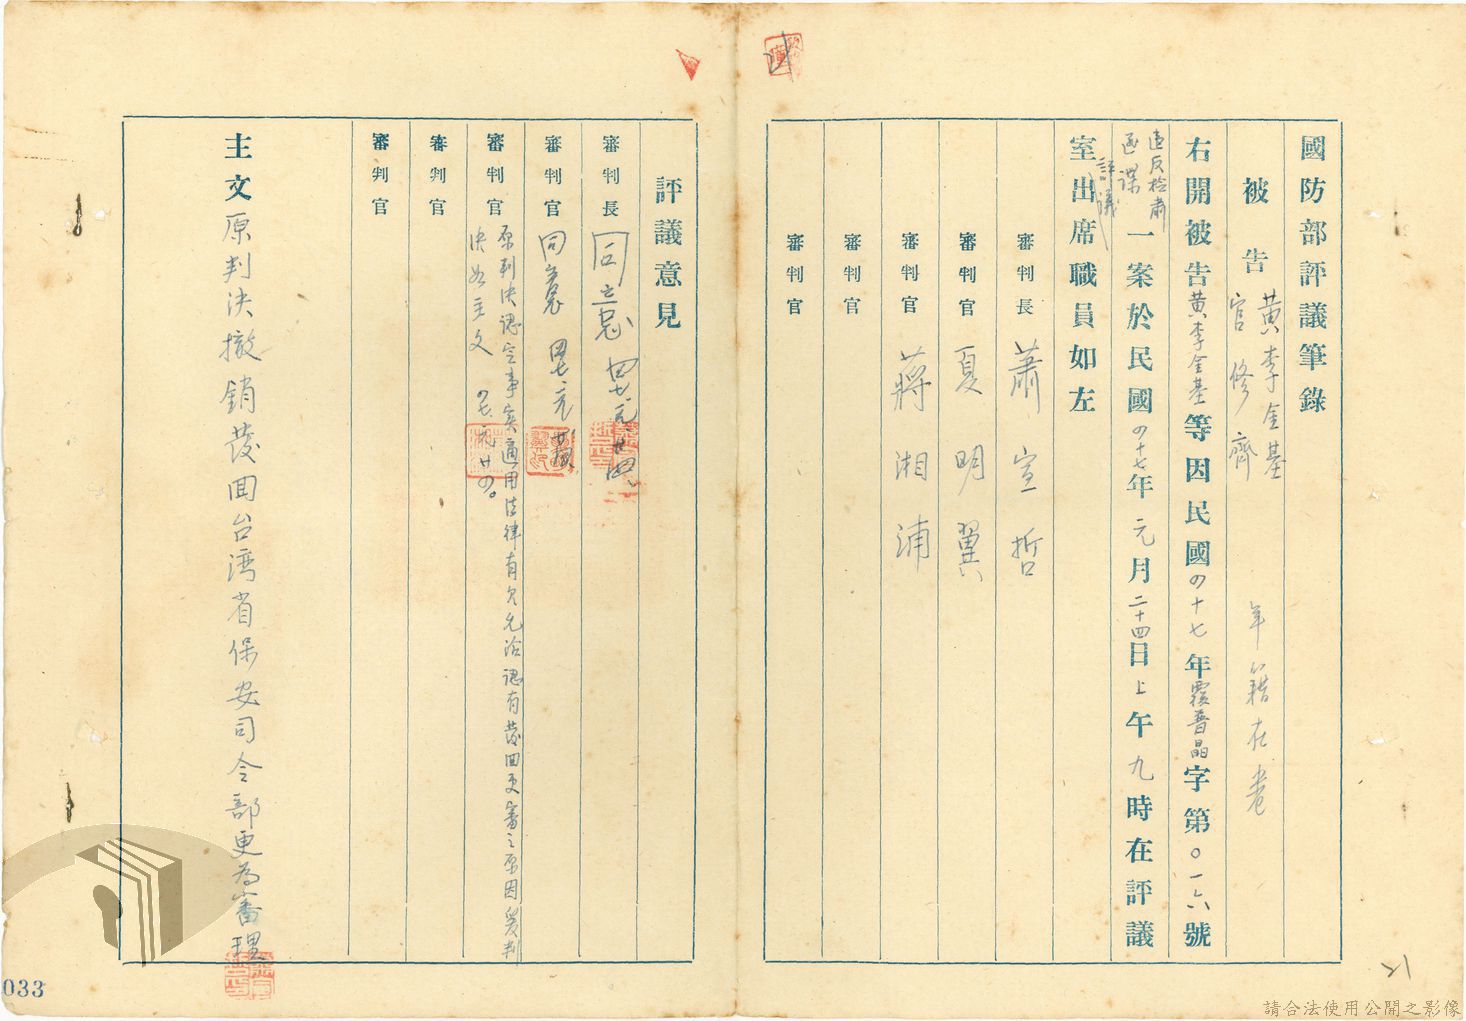 國防部評議筆錄
被告 黃李金基
官修齊 年籍在卷
右開被告黃李金基等因民國四十七年覆普晶字第〇一六號
違反檢肅
匪諜
一案於民國四十七年元月二十四日上午九時在評議
評議
室出席職員如左
審判長 蕭宣哲
審判官 夏明翼
審判官 蔣湘浦
審判官
審判官
評議意見
審判長 同意 四七、元、廿四、
審判官 同意 四七、元、廿四
審判官 原判決認定事實適用法律有欠允洽認有發回更審之原因爰判
決如主文 四七、元、廿四。
審判官
審判官
主文 原判決撤銷發回台灣省保安司令部更為審理
033
21
請合法使用公開之影像